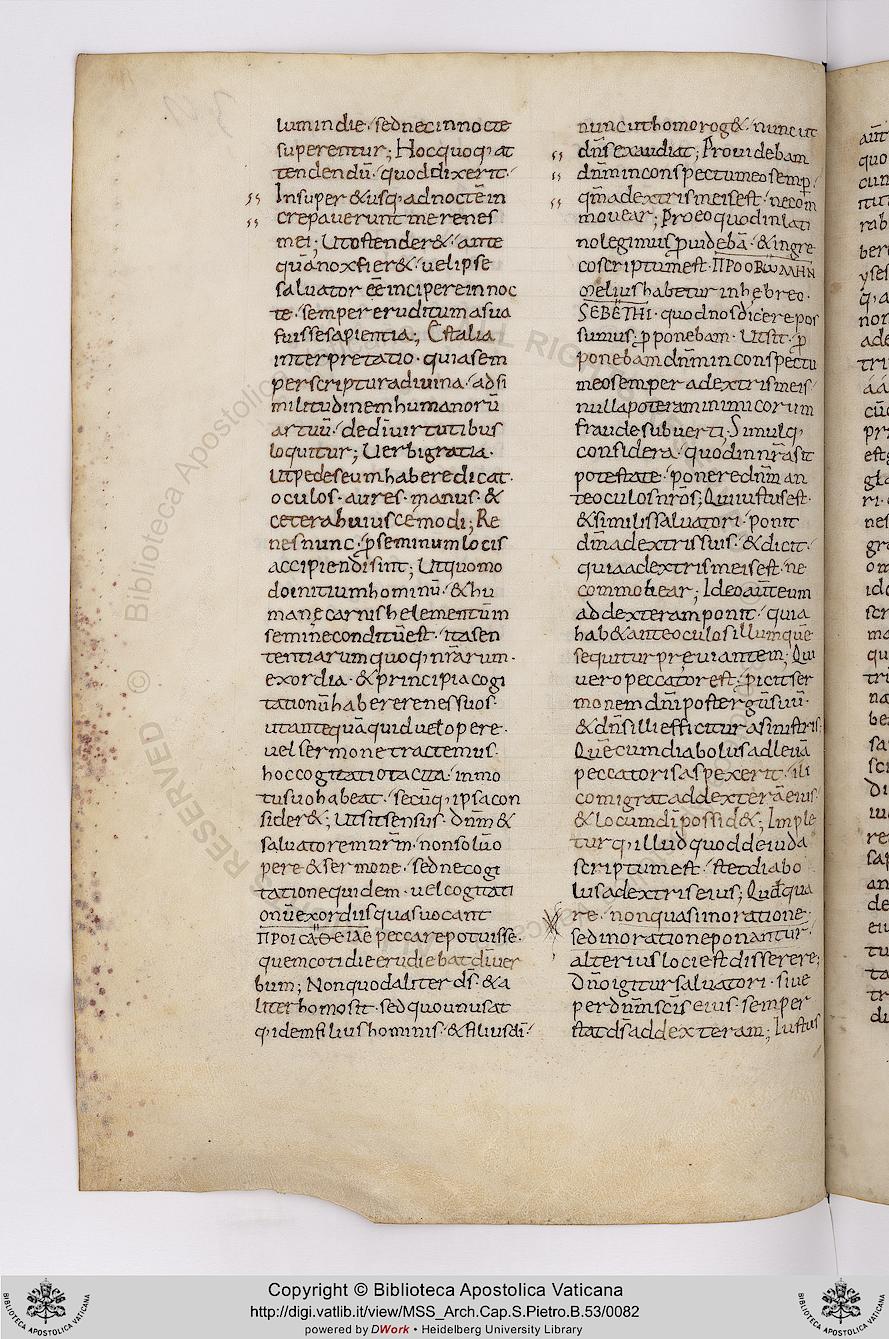 lum in die · sed nec in nocte
superentur; Hoc quoq; at
tendendū · quod dixerit ·
Insuper & usq; ad noctē in
crepauerunt me renes
mei; Ut ostender& · ante
quā nox fier& · uel ipse
saluator eē incipere in noc
te · semper eruditum a sua
fuisse sapientia; Est alia
interpretatio · quia sem
per scriptura diuina · ad si
militudinem humanorū
artuū · de dī uirtutibus
loquitur; Uerbi gratia ·
Ut pedes eum habere dicat ·
oculos · aures · manus · &
cetera huiuscemodi; Re
nes nunc · p seminum locis
accipiendi sint; Ut quomo
do initium hominū · & hu
mane carnis helementum
semine conditū est · ita sen
tentiarum quoq; nr̄arum ·
exordia · & principia cogi
tationū habere renes suos ·
ut antequā quid uel opere ·
uel sermone tractemus ·
hoc cogitatio tacita · in mo
tu suo habeat · secūq; ipsa con
sider&; Ut sit sensus · dnm̄ &
saluatorem nr̄m · non solū o
pere & sermone · sed nec cogi
tatione quidem · uel cogitati
onū exordiis quas uocant
peccare potuisse ·
quem cotidie erudiebat diuer
bum; Non quod aliter ds̄ · & a
liter homo sit · sed quo unus at
q; idem filius hominis · & filius dī ·
nunc ut homo rog& · nunc ut
dn̄s exaudiat; Prouidebam
dnm̄ in conspectu meo semp ·
qm̄ a dextris mei sest · ne com
mouear; Pro eo quod in lati
no legimus puidebā · & in gre
co scriptum est · ΠΡΟΟΒΩΛΛΗΝ
melius habetur in hebreo ·
SEBETHI · quod nos dicere pos
sumus · pponebam · Ut sit · p
ponebam dnm̄ in conspectu
meo semper a dextris meis
nulla poteram inimicorum
fraude subuerti; Simulq;
considera · quod in nr̄a sit
potestate · ponere dnm̄ an
te oculos nr̄os; Qui iustus est ·
& similis saluatori · ponit
dnm̄ a dextris suis · & dicit ·
quia a dextris mei sest · ne
commouear; Ideo autē eum
ad dexteram ponit · quia
hab& ante oculos illum quē
sequitur preuiantem; Qui
uero peccator est · picit ser
monem dnī post ergū suū ·
& dn̄s illi efficitur a sinistris ·
Quē cum diabolus ad leuā
peccatoris aspexerit · ili
co migrat ad dexterā eius ·
& locum dī possid&; Imple
turq; illud quod de iuda
scriptum est · stet diabo
lus a dextris eius; Qud qua
re · non quasi in oratione ·
sed in oratione ponantur ·
alterius loci est disserere;
Dn̄o igitur saluatori · siue
per dnm̄ scīs eius · semper
stat ds̄ ad dexteram; Iustus
Copyright © Biblioteca Apostolica Vaticana
http://digi.vatlib.it/view/MSS_Arch.Cap.S.Pietro.B.53/0082
powered by DWork • Heidelberg University Library